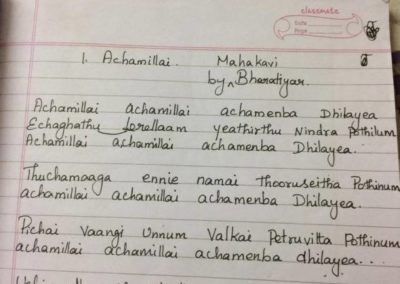 classmate
Date
Page
1. Achamillai. Mahakavi
by ^ Bharatiyar.
Achamillai achamillai achamenba Dhilayea
Echaghathu lorellaam yeathirthu Nindra Pothilum
Achamillai achamillai achamenba Dhilayea..
Thuchamaaga ennie namai thooruseitha Pothinum
achamillai achamillai achamenba Dhilayea.
Pichai vaangi Unnum Valkai Petruvitta Pothinum
achamillai achamillai achamenba dhilayea...